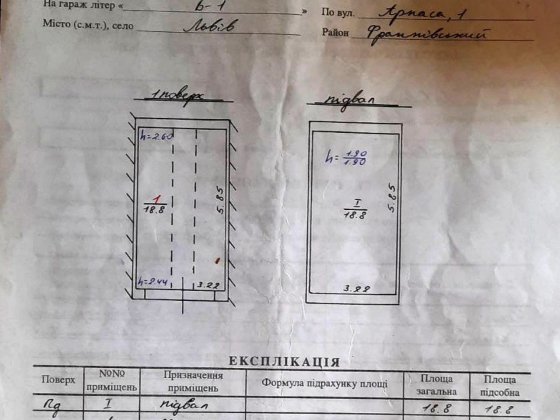 На гараж літер « Б-1 » По вул. Арпаса, 1
Місто (с.м.т.), село Львів Район Франківський
1 поверх підвал
h=2.60
h= 1.90/1.90
1/18.8 5.85
I/18.8 5.85
h=2.44 3.22
3.22
ЕКСПЛІКАЦІЯ
Поверх №№ приміщень Призначення приміщень Формула підрахунку площі Площа загальна Площа підсобна
Пд I підвал 18.8 18.8